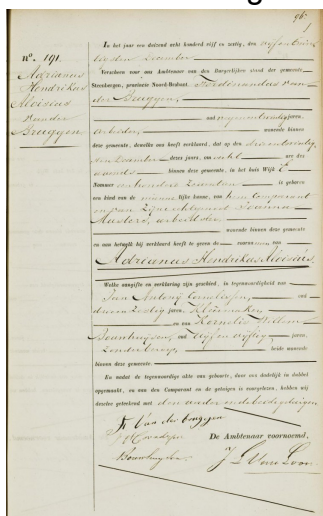 96.
Nº. 191.
Adrianus
Hendrikus
Aloisius
van der
Bruggen
In het jaar een duizend acht honderd vijf en zestig, den vijfentwin-
tigsten December
Verscheen voor ons Ambtenaar van den Burgerlijken stand der gemeente
Steenbergen, provincie Noord-Braband, Ferdinandus van
der Bruggen,
oud negenentwintig jaren,
arbeider, wonende binnen
deze gemeente, dewelke ons heeft verklaard, dat op den drieentwintig-
sten December dezes jaars, om acht ure des
avonds binnen deze gemeente, in het huis Wijk
Nummer honderd is geboren
een kind van de mannelijke kunne, van hem Comparant
en van zijne echtgenoot Joanna
Musters, arbeidster,
wonende binnen deze gemeente
en aan hetwelk hij verklaard heeft te geven de voornamen van
Adrianus Hendrikus Aloisius,
Welke aangifte en verklaring zijn geschied, in tegenwoordigheid van
Jan Antony Cornelissen, oud
drieenzestig jaren, kleermaker
en van Kornelis Willem
Bouwhuijsen, oud vijfenvijftig jaren,
zonder beroep, beide wonende
binnen deze gemeente.
En nadat de tegenwoordige akte van geboorte, door ons dadelijk in dubbel
opgemaakt, en aan den Comparant en de getuigen is voorgelezen, hebben wij
dezelve geteekend met den ander en de beide getuigen
F. van der bruggen
Bouwhuijsen
De Ambtenaar voornoemd,
J. L. van Loon